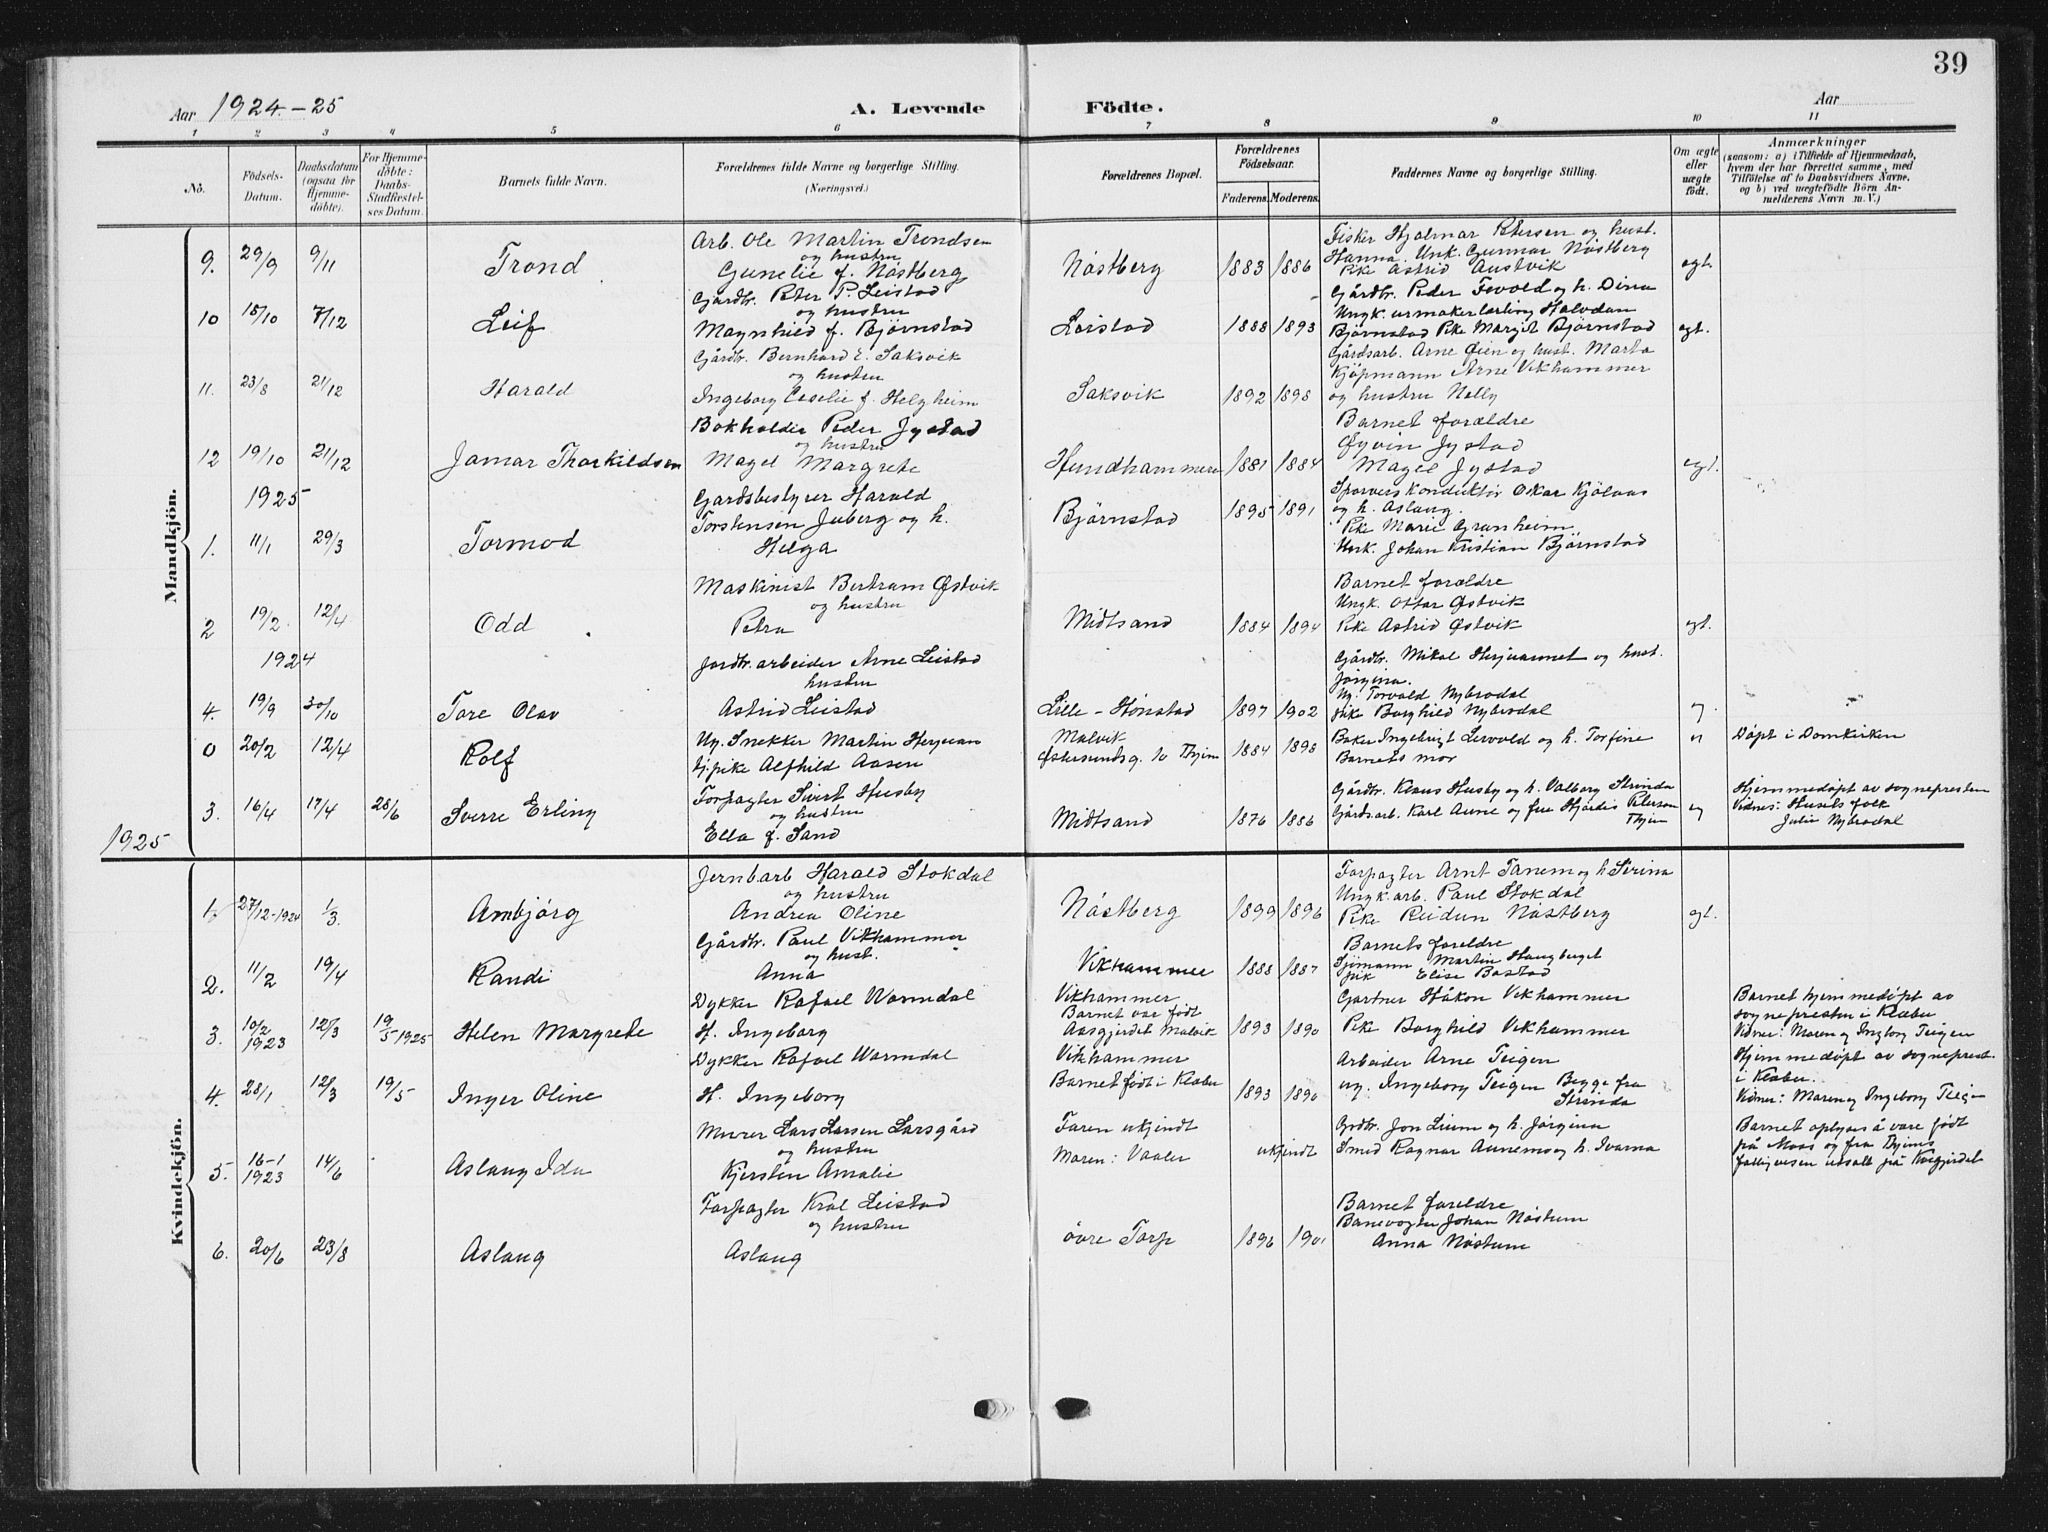 39
Aar 1924–25
A. Levende
Födte.
Aar
1 2 3 4 5 6 7 8 9 10 11
No.
Födsels-Datum.
Daabsdatum (ogsaa for Hjemmedöbte).
For Hjemmedöbte: Daabs-Stadfæstelses Datum.
Barnets fulde Navn.
Forældrenes fulde Navne og borgerlige Stilling. (Næringsvei.)
Forældrenes Bopæl.
Forældrenes Födselsaar.
Faderens. Moderens.
Faddernes Navne og borgerlige Stilling.
Om ægte eller uægte födt.
Anmærkninger
(saasom: a) i Tilfælde af Hjemmedaab, hvem der har forrettet samme, med Tilföielse af to Daabsvidners Navne, og b) ved uægtefödte Börn Anmelderens Navn m. V.)
Mandkjön.
9. 29/9 9/11 Trond
Arb. Ole Martin Trondsen
og hustru
Gunelie f. Nåstberg
Nåstberg 1883 1886
Fisker Hjalmar Petersen og hust.
Hanna. Unk. Gunnar Nåstberg
Pike Astrid Austvik
egt.
10 15/10 7/12 Leif
Gårdbr. Peter P. Leistad
og hustru
Magnhild f. Bjørnstad
Leistad 1888 1893
Gårdbr. Peder Fevold og h. Dina
Ungk. urmakerlærling Halvdan
Bjørnstad Pike Margit Bjørnstad
egt.
11. 23/8 21/12 Harald
Gårdbr. Bernhard E. Saksvik
og hustru
Ingeborg Ceselie f. Helgheim
Saksvik 1892 1898
Gårdsarb. Arne Øien og hust. Marta
Kjøpmann Arne Vikhammer
og hustru Nelly
12 19/10 21/12 Jomar Thorkildsen
Bokholder Peder Jystad
og hustru
Magel Margrete
Hundhammeren 1881 1884
Barnet forældre
Øyvin Jystad
Magel Jystad
egt.
1925
1. 11/1 29/3 Tormod
Gardsbestyrer Harald
Torstensen Juberg og h.
Helga
Bjørnstad 1895 1891
Sporveiskonduktør Oskar Kjølaas
og h. Aslaug.
Pike Marie Granheim
Unk. Johan Kristian Bjørnstad
2 19/2 12/4 Odd
Maskinist Bertram Østvik
og hustru
Petra
Midtsand 1884 1894
Barnet forældre
Ungk. Ottar Østvik
Pike Astrid Østvik
egt.
1924
4. 19/9 30/10 Tore Olav
Jordbr.arbeider Arne Leistad
hustru
Astrid Leistad
Lille-Hønstad 1897 1902
Gårdbr. Mikal Herjuaunet og hust.
Jørgina.
Ug. Torvald Nybrodal
Pike Borghild Nybrodal
0 20/2 12/4 Rolf
Ug. Snekker Martin Herjuan
tj.pike Alfhild Aasen
Malvik
Østersundsg. 10 Thjem 1884 1898
Baker Ingebrigt Leivold og h. Torfine
Barnets mor
u
Døpt i Domkirken
3. 16/4 17/4 28/6 Sverre Erling
Forpagter Sivert Husby
og hustru
Ella f. Sand
Midtsand 1876 1886
Gårdbr. Klaus Husby og h. Valborg Strinda
Gårdsarb. Karl Aune og frue Hjørdis Peterson
Thjem
Hjemmedøpt av sognepresten
Vidner: Husets folk
Julie Nybrodal
1925
Kvindekjön.
1. 27/12-1924 1/3. Ambjørg
Jernbarb Harald Stokdal
og hustru
Andrea Oline
Nåstberg 1899 1896
Forpagter Arnt Tanem og h. Sirina
Ungk.arb. Paul Stokdal
Pike Reidun Nåstberg
egt.
2. 11/2 19/4 Randi
Gårdbr. Paul Vikhammer
og hust.
Anna
Vikhammer 1888 1887
Barnets foreldre
Sjømann Martin Haugberget
pik Elise Bostad
3. 10/2 1923 12/3 19/5 1925 Helen Margrete
Dykker Rafael Warmdal
H. Ingeborg
Vikhammer
Barnet var født
Aasgjerdet Malvik 1893 1890
Gartner Håkon Vikhammer
Pike Borghild Vikhammer
Barnet hjemmedøpt av
sognepresten i Klæbu
Vidner: Maren og Ingborg Teigen
4. 28/1 12/3 19/5 Inger Oline
Dykker Rafael Warmdal
H. Ingeborg
Vikhammer
Barnet født i Klæbu 1893 1890
Arbeider Arne Teigen
ug. Ingeborg Teigen Begge fra
Strinda
Hjemmedøpt av sogneprest.
i Klæbu.
Vidner: Maren og Ingeborg Teigen
5. 16-1 1923 14/6 Aslaug Ida
Murer Lars Larsen Larsgård
og hustru
Kjersten Amalie
Faren ukjendt
Moren: Vaaler ukjendt
Grdbr. Jon Leium og h. Jørgina
Smed Ragnar Aunemo og h. Ivarna
Barnet oplyses å være født
på Moss og fra Thjems
fattigvesen utsatt på Kvegjerdet
6. 20/6 23/8 Aslaug
Forpagter Krol Leistad
og hustru
Aslaug
øvre Torp 1896 1901
Barnet foreldre
Banevogter Johan Nøstum
Anna Nøstum